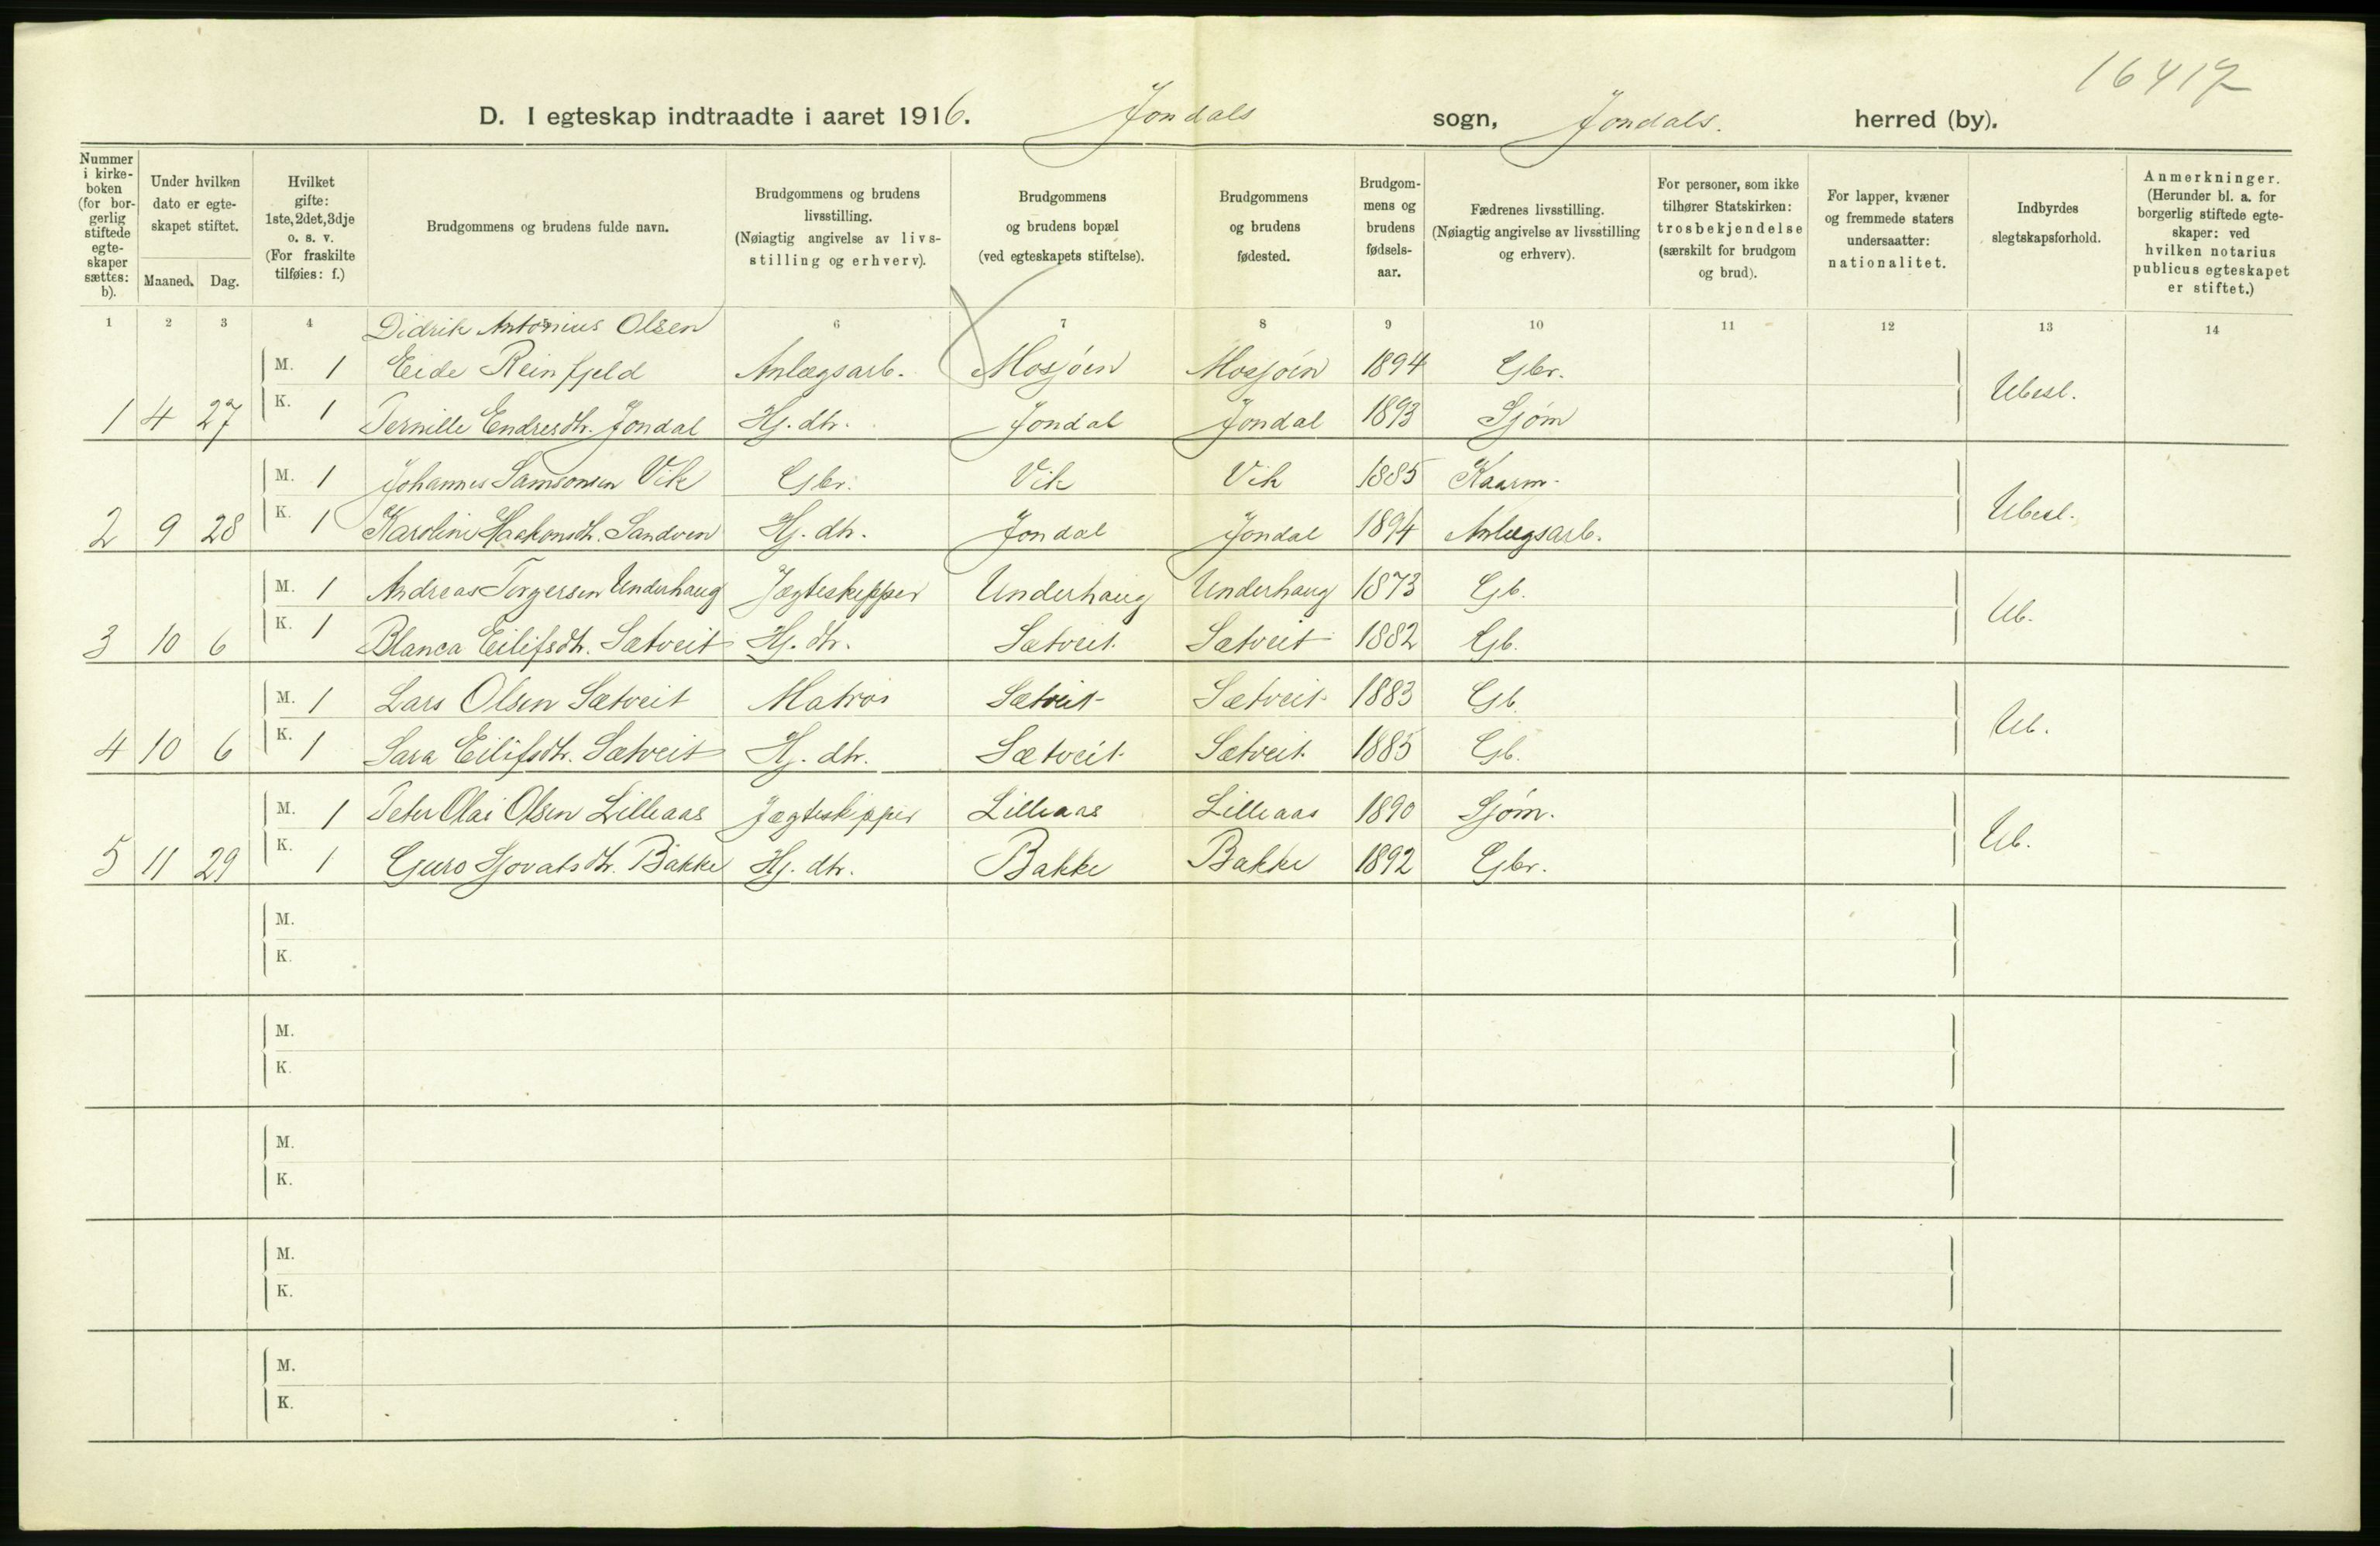 16417
D. I egteskap indtraadte i aaret 1916. Jondals sogn, Jondals. herred (by).
Nummer i kirke-boken (for bor-gerlig stiftede egte-skaper sættes: b). | Under hvilken dato er egte-skapet stiftet. Maaned. Dag. | Hvilket gifte: 1ste, 2det, 3dje o. s. v. (For fraskilte tilføies: f.) | Brudgommens og brudens fulde navn. | Brudgommens og brudens livsstilling. (Nøiagtig angivelse av livs-stilling og erhverv). | Brudgommens og brudens bopæl (ved egteskapets stiftelse). | Brudgommens og brudens fødested. | Brudgom-mens og brudens fødsels-aar. | Fædrenes livsstilling. (Nøiagtig angivelse av livsstilling og erhverv). | For personer, som ikke tilhører Statskirken: trosbekjendelse (særskilt for brudgom og brud). | For lapper, kvæner og fremmede staters undersaatter: nationalitet. | Indbyrdes slegtskapsforhold. | Anmerkninger. (Herunder bl. a. for borgerlig stiftede egte-skaper: ved hvilken notarius publicus egteskapet er stiftet.)
1 2 3 4 6 7 8 9 10 11 12 13 14
Didrik Antonius Olsen
M. 1 Eide Reinfjeld Anlægsarb. Mosjøen Mosjøen 1894 Gbr. Ubesl.
1 4 27 K. 1 Pernille Endresdtr. Jondal Hj. dtr. Jondal Jondal 1893 Sjøm
M. 1 Johannes Samsonsen Vik Gbr. Vik Vik 1885 Kaarm. Ubesl.
2 9 28 K. 1 Karoline Haakonsdtr. Sandven Hj. dtr. Jondal Jondal 1894 Anlægsarb.
M. 1 Andreas Torgersen Underhaug Jægteskipper Underhaug Underhaug 1873 Gb. Ub.
3 10 6 K. 1 Blanca Eilifsdtr. Sætveit Hj. dtr. Sætveit Sætveit 1882 Gb.
M. 1 Lars Olsen Sætveit Matros Sætveit Sætveit 1883 Gb. Ub.
4 10 6 K. 1 Sara Eilifsdtr. Sætveit Hj. dtr. Sætveit Sætveit 1885 Gb.
M. 1 Peter Olai Olsen Lilleaas Jægteskipper Lilleaas Lilleaas 1890 Sjøm. Ub.
5 11 29 K. 1 Guro Sjovatsdtr. Bakke Hj. dtr. Bakke Bakke 1892 Gbr.
M.
K.
M.
K.
M.
K.
M.
K.
M.
K.